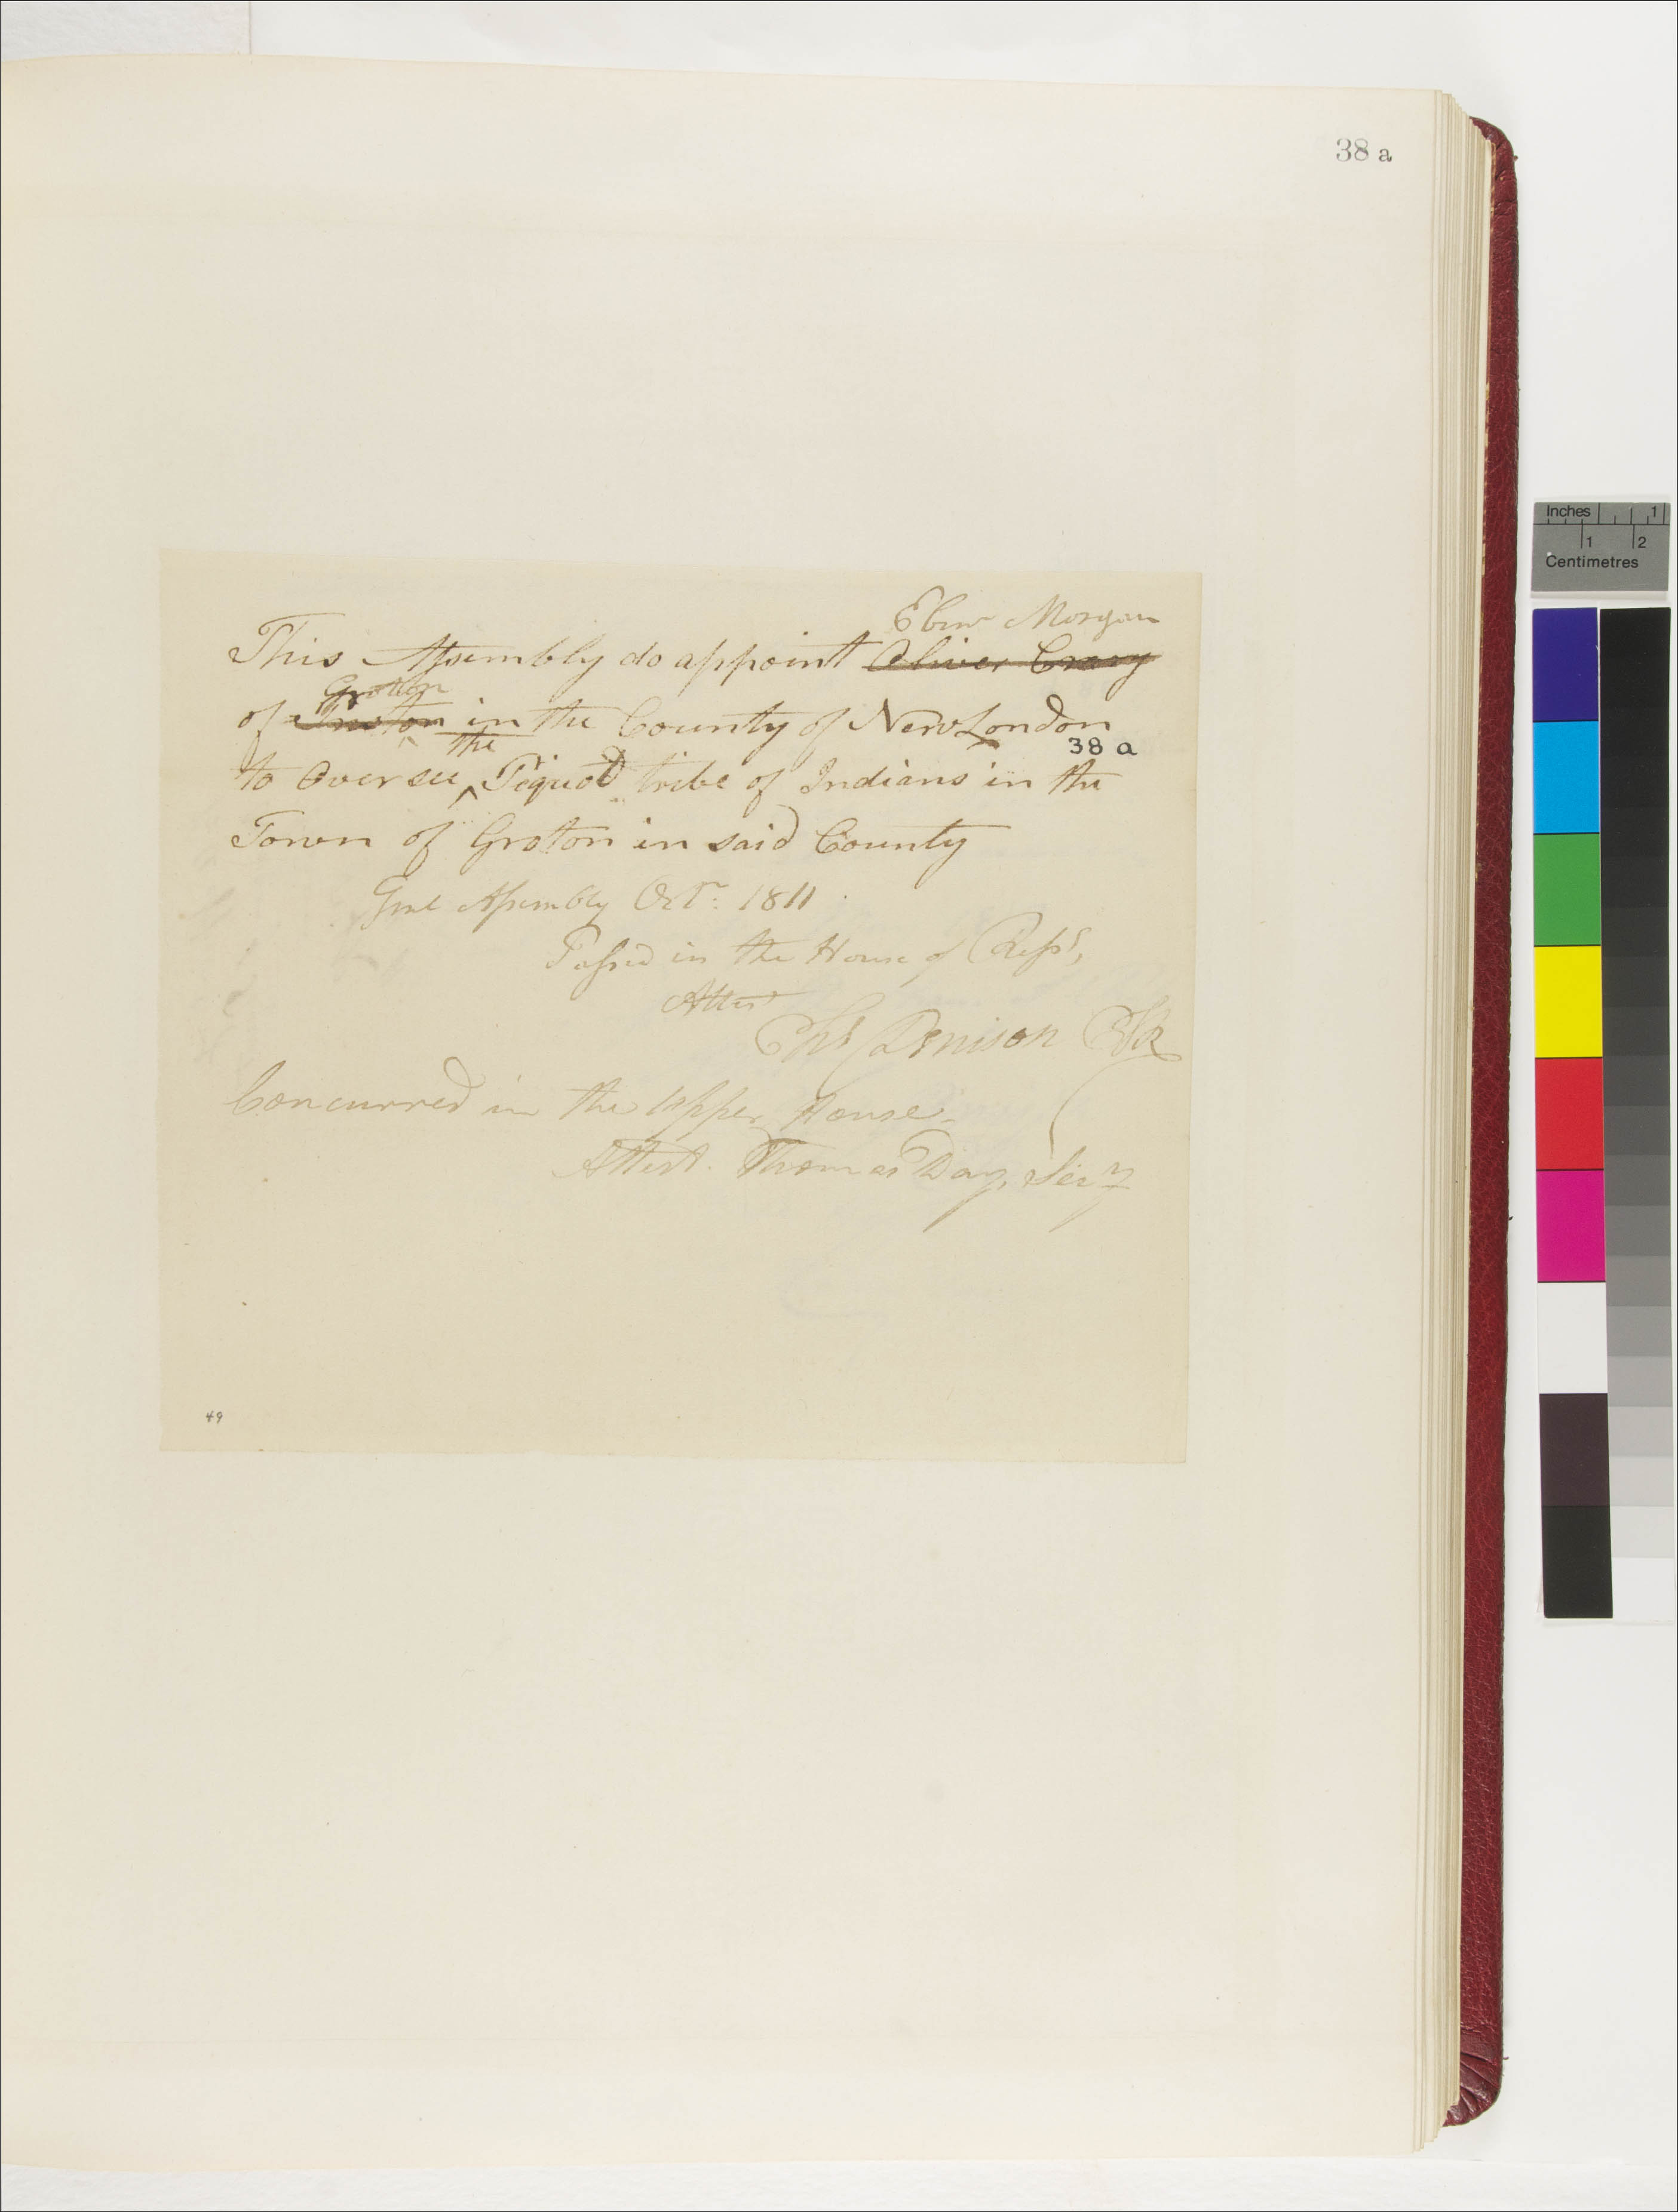 38 a
Ebenr Morgan
This Assembly do appoint Oliver Crary
Groton
of Preston in the County of New London
the
38 a
to Oversee ^ Pequot tribe of Indians in the
Town of Groton in said County
Genl Assembly Octr: 1811.
Passed in the House of Reps,
Attest
Chs Denison Clk
Concurred in the Upper House.
Attest. Thomas Day, Secy
49
Inches 1
1 2
Centimetres